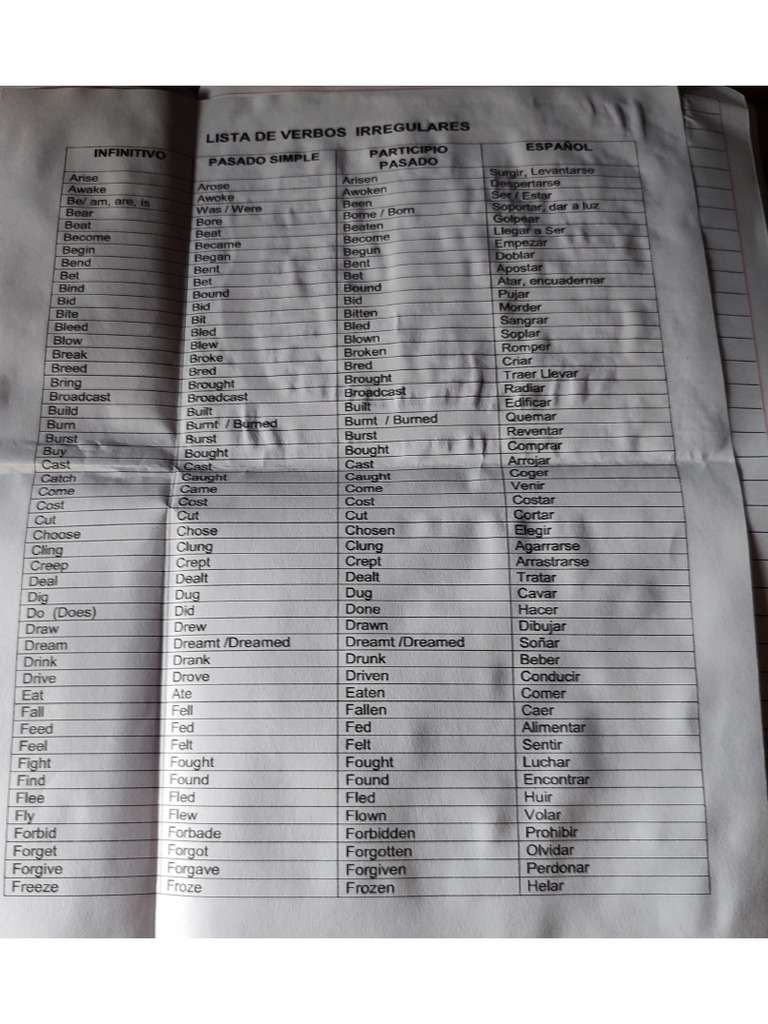 LISTA DE VERBOS IRREGULARES
INFINITIVO PASADO SIMPLE PARTICIPIO PASADO ESPAÑOL
Arise Arose Arisen Surgir, Levantarse
Awake Awoke Awoken Despertarse
Be/ am, are, is Was / Were Been Ser / Estar
Bear Bore Borne / Born Soportar, dar a luz
Beat Beat Beaten Golpear
Become Became Become Llegar a Ser
Begin Began Begun Empezar
Bend Bent Bent Doblar
Bet Bet Bet Apostar
Bind Bound Bound Atar, encuadernar
Bid Bid Bid Pujar
Bite Bit Bitten Morder
Bleed Bled Bled Sangrar
Blow Blew Blown Soplar
Break Broke Broken Romper
Breed Bred Bred Criar
Bring Brought Brought Traer Llevar
Broadcast Broadcast Broadcast Radiar
Build Built Built Edificar
Burn Burnt / Burned Burnt / Burned Quemar
Burst Burst Burst Reventar
Buy Bought Bought Comprar
Cast Cast Cast Arrojar
Catch Caught Caught Coger
Come Came Come Venir
Cost Cost Cost Costar
Cut Cut Cut Cortar
Choose Chose Chosen Elegir
Cling Clung Clung Agarrarse
Creep Crept Crept Arrastrarse
Deal Dealt Dealt Tratar
Dig Dug Dug Cavar
Do (Does) Did Done Hacer
Draw Drew Drawn Dibujar
Dream Dreamt /Dreamed Dreamt /Dreamed Soñar
Drink Drank Drunk Beber
Drive Drove Driven Conducir
Eat Ate Eaten Comer
Fall Fell Fallen Caer
Feed Fed Fed Alimentar
Feel Felt Felt Sentir
Fight Fought Fought Luchar
Find Found Found Encontrar
Flee Fled Fled Huir
Fly Flew Flown Volar
Forbid Forbade Forbidden Prohibir
Forget Forgot Forgotten Olvidar
Forgive Forgave Forgiven Perdonar
Freeze Froze Frozen Helar